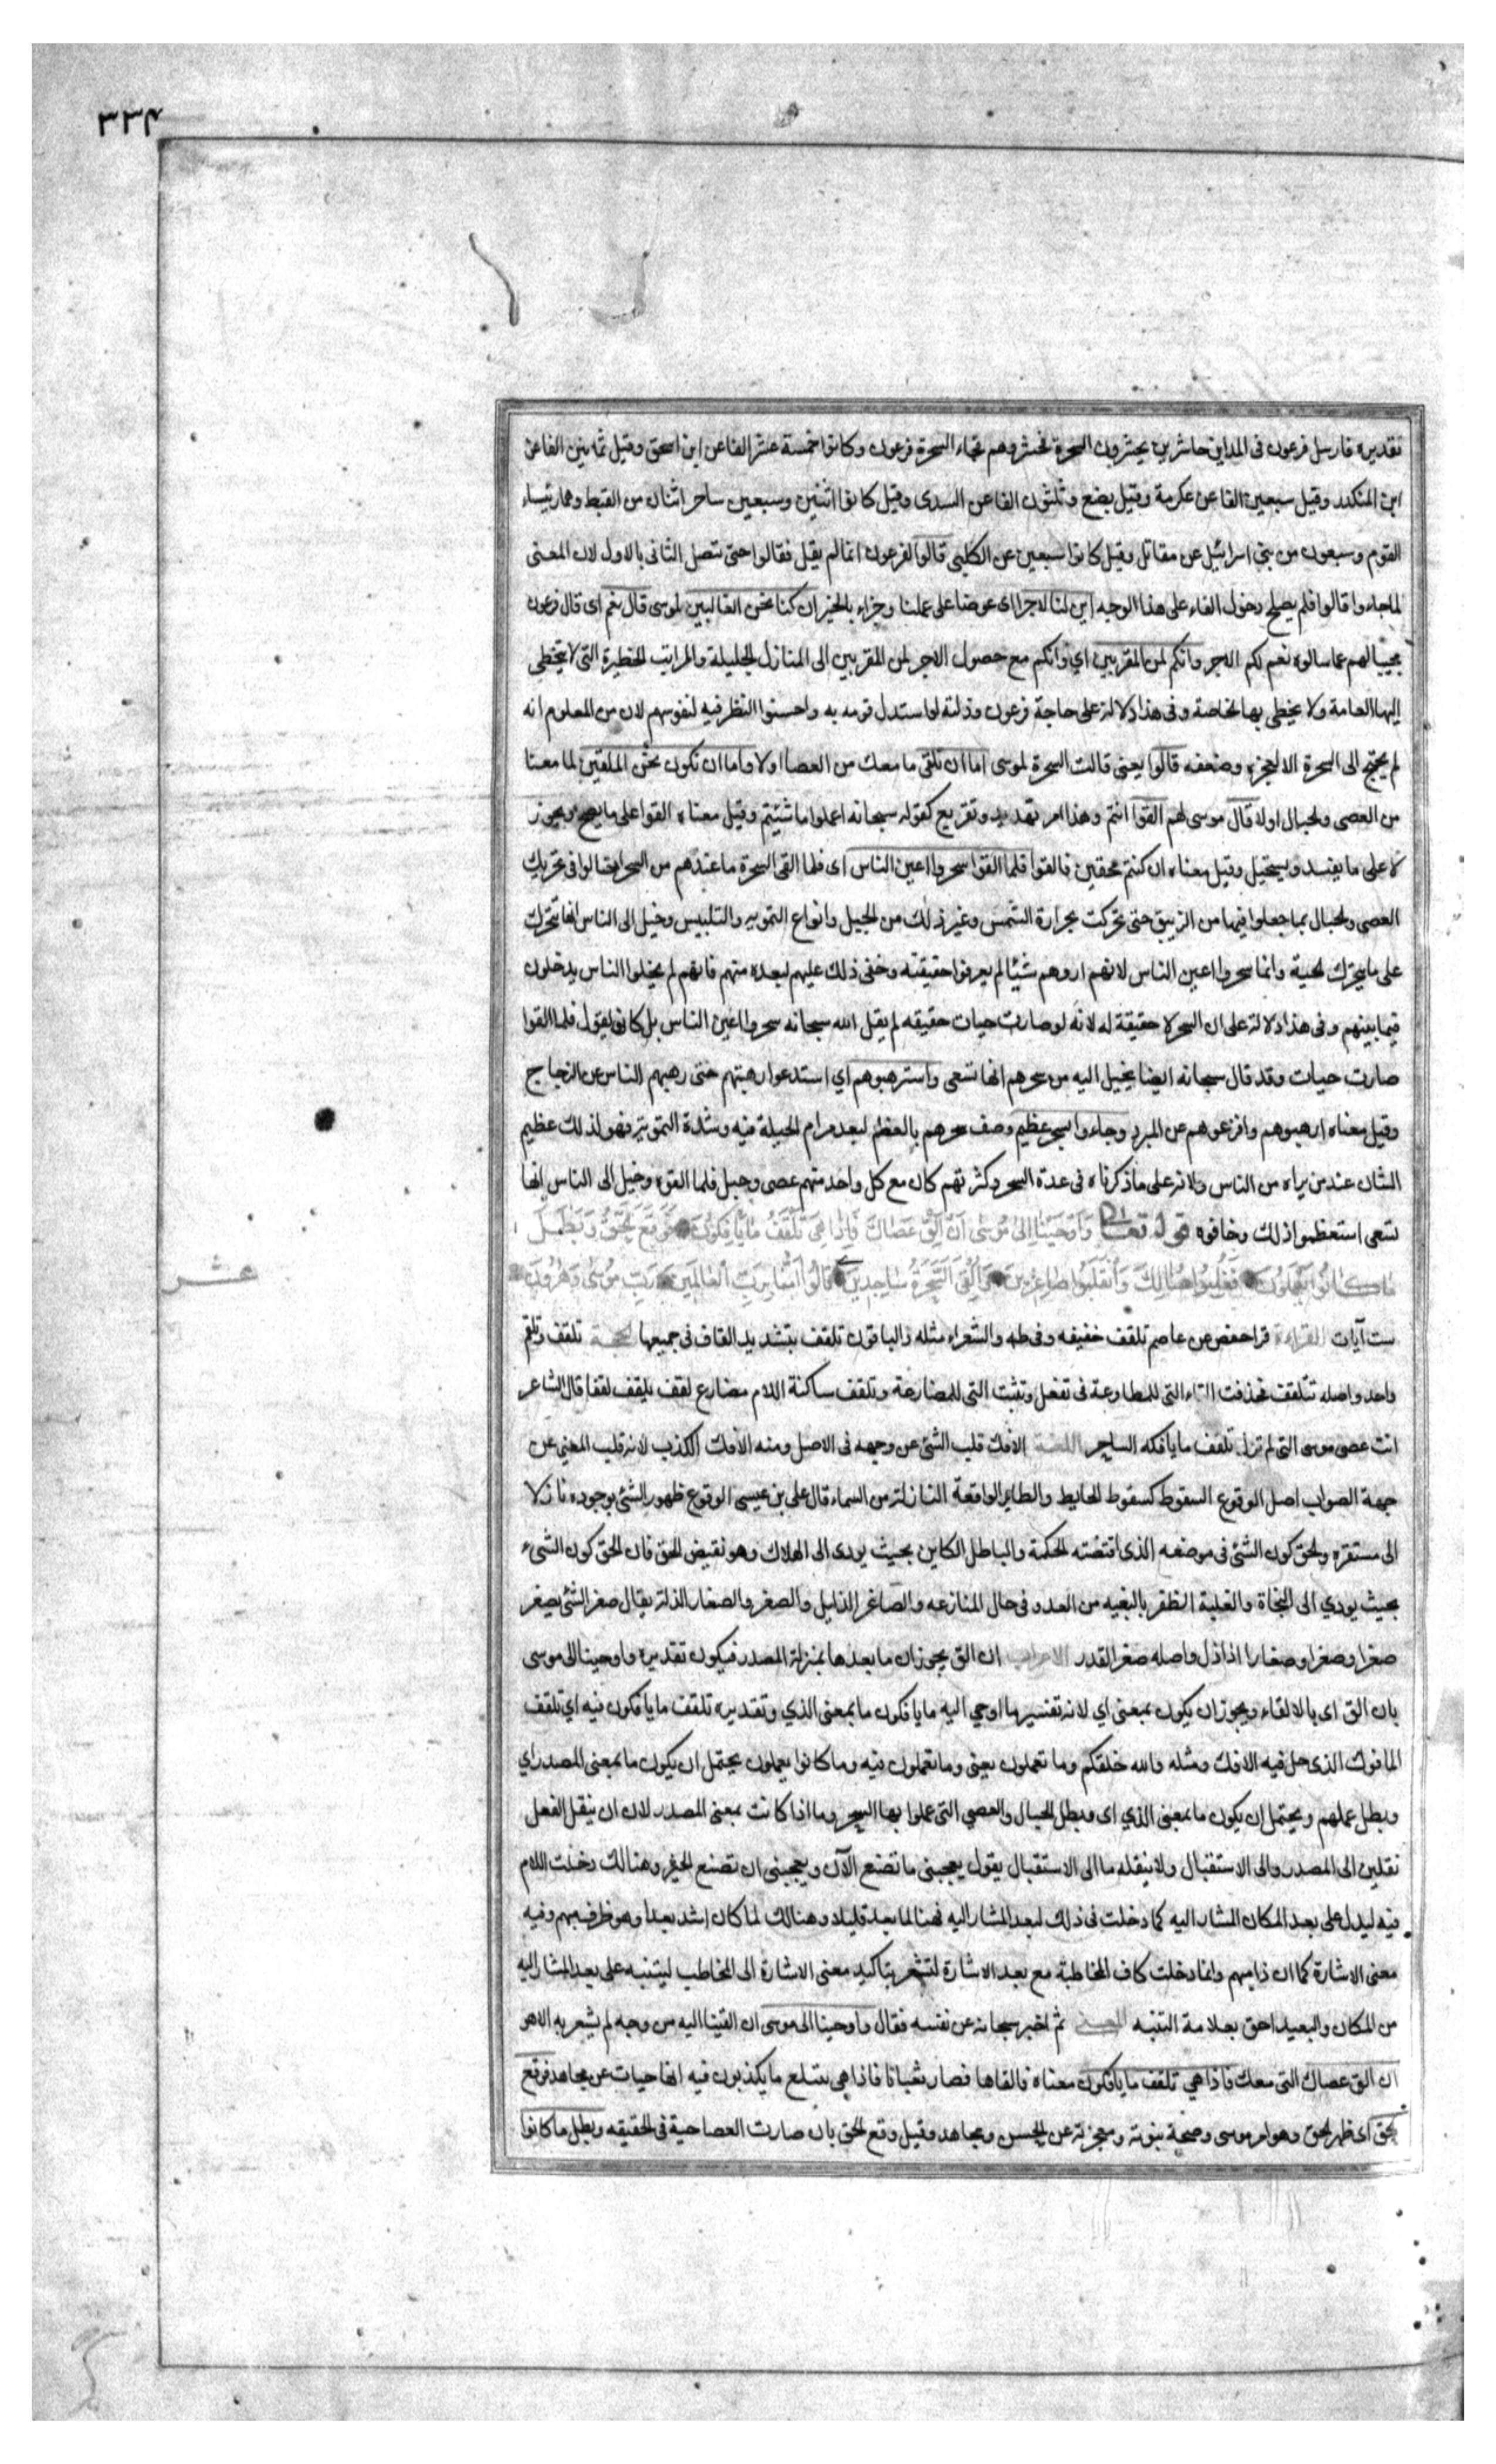 ٣٣٤
تقديره فارسل فرعون فى المداين حاشرين يحشرون السحرة فحشروهم فجاء السحرة فرعون وكانوا خمسة عشر الفا عن ابن اسحق وقيل ثمانين الفا عن
ابن المنكدر وقيل سبعين الفا عن عكرمة وقيل بضع وثلثون الفا عن السدى وقيل كانوا اثنين وسبعين ساحرا اثنان من القبط وهما رئيساء
القوم وسبعون من بنى اسرائيل عن مقاتل وقيل كانوا سبعين عن الكلبى قالوا لفرعون انما لم يقل فقالوا حتى تتصل الثانى بالاول لان المعنى
لما جاءوا قالوا فلم يصلح دخول الفاء على هذا الوجه اين لنا لاجرا اى عوضا على عملنا وجزاء بالخير ان كنا نحن الغالبين لموسى قال نعم اى قال فرعون
مجيبا لهم عما سالوه نعم لكم الاجر وانكم لمن المقربين اي وانكم مع حصول الاجر لمن المقربين الى المنازل الجليلة والمراتب الخطيرة التى لا يتخطى
اليها العامة ولا يخطى بها الخاصة وفى هذا دلالة على حاجة فرعون وذلته لو استدل قومه به واحسنوا النظر فيه لنفوسهم لان من المعلوم انه
لم يحتج الى السحرة الا لعجزه وضعفه قالوا يعنى قالت السحرة لموسى اما ان تلقى ما معك من العصا اولا واما ان نكون نحن الملقين لما معنا
من العصى والحبال اولا قال موسى لهم القوا انتم وهذا امر تهديد وتقريع كقوله سبحانه اعملوا ما شئتم وقيل معناه القوا على ما يصح ويجوز
لا على ما يفسد ويستحيل وقيل معناه ان كنتم محقين فالقوا فلما القوا سحروا اعين الناس اى فلما القى السحرة ما عندهم من السحر احتالوا فى تحريك
العصى والحبال بما جعلوا فيها من الزيبق حتى تحركت بحرارة الشمس وغير ذلك من الحيل وانواع التمويه والتلبيس وخيل الى الناس انها تتحرك
على ما يتحرك الحية وانما سحروا اعين الناس لانهم اروهم شيئا لم يعرفوا حقيقته وخفى ذلك عليهم لبعده منهم فانهم لم يخلوا الناس يدخلون
فيما بينهم وفى هذا دلالة على ان السحر لا حقيقة له لانه لو صارت حيات حقيقه لم يقل الله سبحانه سحروا اعين الناس بل كان يقول فلما القوا
صارت حيات وقد قال سبحانه ايضا يخيل اليه من سحرهم انها تسعى واسترهبوهم اي استدعوا رهبتهم حتى رهبهم الناس عن الزجاج
وقيل معناه ارهبوهم وافزعوهم عن المبرد وجاءوا بسحر عظيم وصف سحرهم بالعظم لبعد مرام الحيلة فيه وشدة التمويه فهو لذلك عظيم
الشان عند من يراه من الناس ولانه على ما ذكرناه فى عدة السحرة وكثرتهم كان مع كل واحد منهم عصى وحبل فلما القوه وخيل الى الناس انها
تسعى استعظموا ذلك وخافوه قوله تعالى وَاَوْحَيْنَا اِلىٰ مُوسٰى اَنْ اَلْقِ عَصَاكَ فَاِذَا هِىَ تَلْقَفُ مَا يَأْفِكُونَ فَوَقَعَ الْحَقُّ وَبَطَلَ
مَا كَانُوا يَعْمَلُونَ فَغُلِبُوا هُنَالِكَ وَانْقَلَبُوا صَاغِرِينَ وَاُلْقِىَ السَّحَرَةُ سَاجِدِينَ قَالُوا اٰمَنَّا بِرَبِّ الْعَالَمِينَ رَبِّ مُوسٰى وَهٰرُونَ
عشر
ست آيات القراءة قرا حفص عن عاصم تلقف خفيفه وفى طه والشعراء مثله والباقون تلقف بتشديد القاف فى جميعها الحجة تلقف وتلقم
واحد واصله تتلقف فحذفت التاء التى للمطاوعة فى تفعل وتثبت التى للمضارعة وتلقف ساكنة اللام مضارع لقف يلقف لقفا قال الشاعر
انت عصى موسى التى لم تزل تلقف ما يافكه الساحر اللغة الافك قلب الشئ عن وجهه فى الاصل ومنه الافك الكذب لانه قلب المعنى عن
جهة الصواب اصل الوقوع السقوط كسقوط الحايط والطاير الواقعة النازلة من السماء قال على بن عيسى الوقوع ظهور الشئ بوجوده نازلا
الى مستقره والحق كون الشئ فى موضعه الذى اقتضته الحكمة والباطل الكاين بحيث يودى الى الهلاك وهو نقيض الحق فان الحق كون الشىء
بحيث يودي الى النجاة والغلبة الظفر بالبغيه من العدو فى حال المنازعه والصاغر الذليل والصغر والصغار الذلة يقال صغر الشئ يصغر
صغرا وصغرا وصغارا اذا ذل واصله صغر القدر الاعراب ان الق يجوز ان ما بعدها بمنزلة المصدر فيكون تقديره واوحينا الى موسى
بان الق اى بالالقاء ويجوز ان يكون بمعنى اي لانه تفسير ما اوحي اليه ما يافكون ما بمعنى الذي وتقديره تلقف ما يافكون فيه اي تلقف
المافوك الذى حل فيه الافك ومثله والله خلقكم وما تعملون يعنى وما تعملون فيه وما كانوا يعملون يحتمل ان يكون ما بمعنى المصدر اي
وبطل عملهم ويحتمل ان يكون ما بمعنى الذي اى وبطل الحبال والعصي التى عملوا بها السحر وما اذا كانت بمعنى المصدر لان ان ينقل الفعل
نقلين الى المصدر والى الاستقبال ولا ينقله ما الى الاستقبال يقول يعجبنى ما تصنع الآن ويعجبنى ان تصنع الخير وهنالك دخلت اللام
فيه ليدل على بعد المكان المشار اليه كما دخلت فى ذلك لبعد المشار اليه فهنا لما بعد قليلا وهنالك لما كان اشد بعدا وهو ظرف مبهم وفيه
معنى الاشارة كما ان ذا مبهم وانما دخلت كاف المخاطبة مع بعد الاشارة لتشعر بتاكيد معنى الاشارة الى المخاطب ليتنبه على بعد المشار اليه
من المكان والبعيد احق بعلامة التنبه المعنى ثم اخبر سبحانه عن نفسه فقال واوحينا الى موسى ان القينا اليه من وجه لم يشعر به الا هو
ان الق عصاك التى معك فاذا هي تلقف ما يافكون معناه فالقاها فصار ثعبانا فاذا هى تبتلع ما يكذبون فيه انها حيات عن مجاهد فوقع
الحق اى ظهر الحق وهو امر موسى وصحة نبوته ومعجزته عن الحسن ومجاهد وقيل وقع الحق بان صارت العصا حية فى الحقيقه وبطل ما كانوا